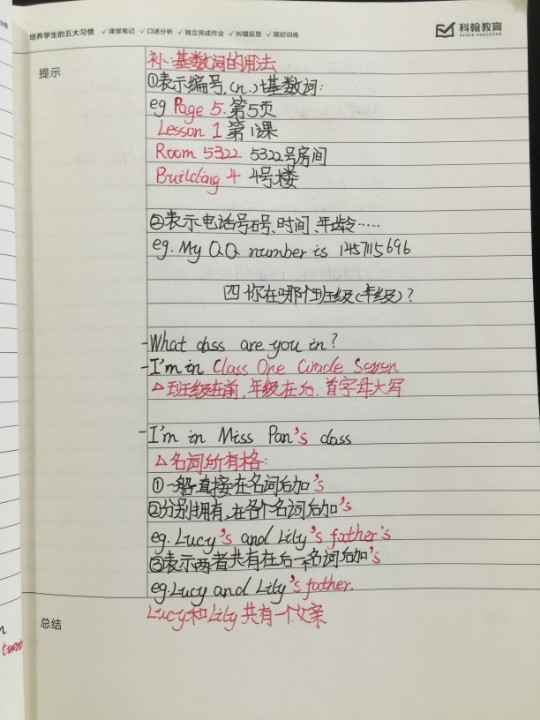 培养学生的五大习惯 ✓课堂笔记 ✓口述分析 ✓独立完成作业 ✓纠错反思 ✓限时训练
科翰教育
提示
补:基数词的用法
①表示编号,(n.)+基数词:
eg Page 5. 第5页
Lesson 1 第1课
Room 5322 5322号房间
Building 4 4号楼
②表示电话号码、时间、年龄……
eg. My QQ number is 1457115696
四 你在哪个班级(年级)?
-What class are you in?
-I'm in Class One Grade Seven
△班级在前,年级在后,首字母大写
- I'm in Miss Pan's class
△名词所有格:
①一般直接在名词后加's
②分别拥有,在各个名词后加's
eg. Lucy's and Lily's father's
③表示两者共有在后一个名词后加's
eg. Lucy and Lily's father.
Lucy和Lily共有一个父亲
总结